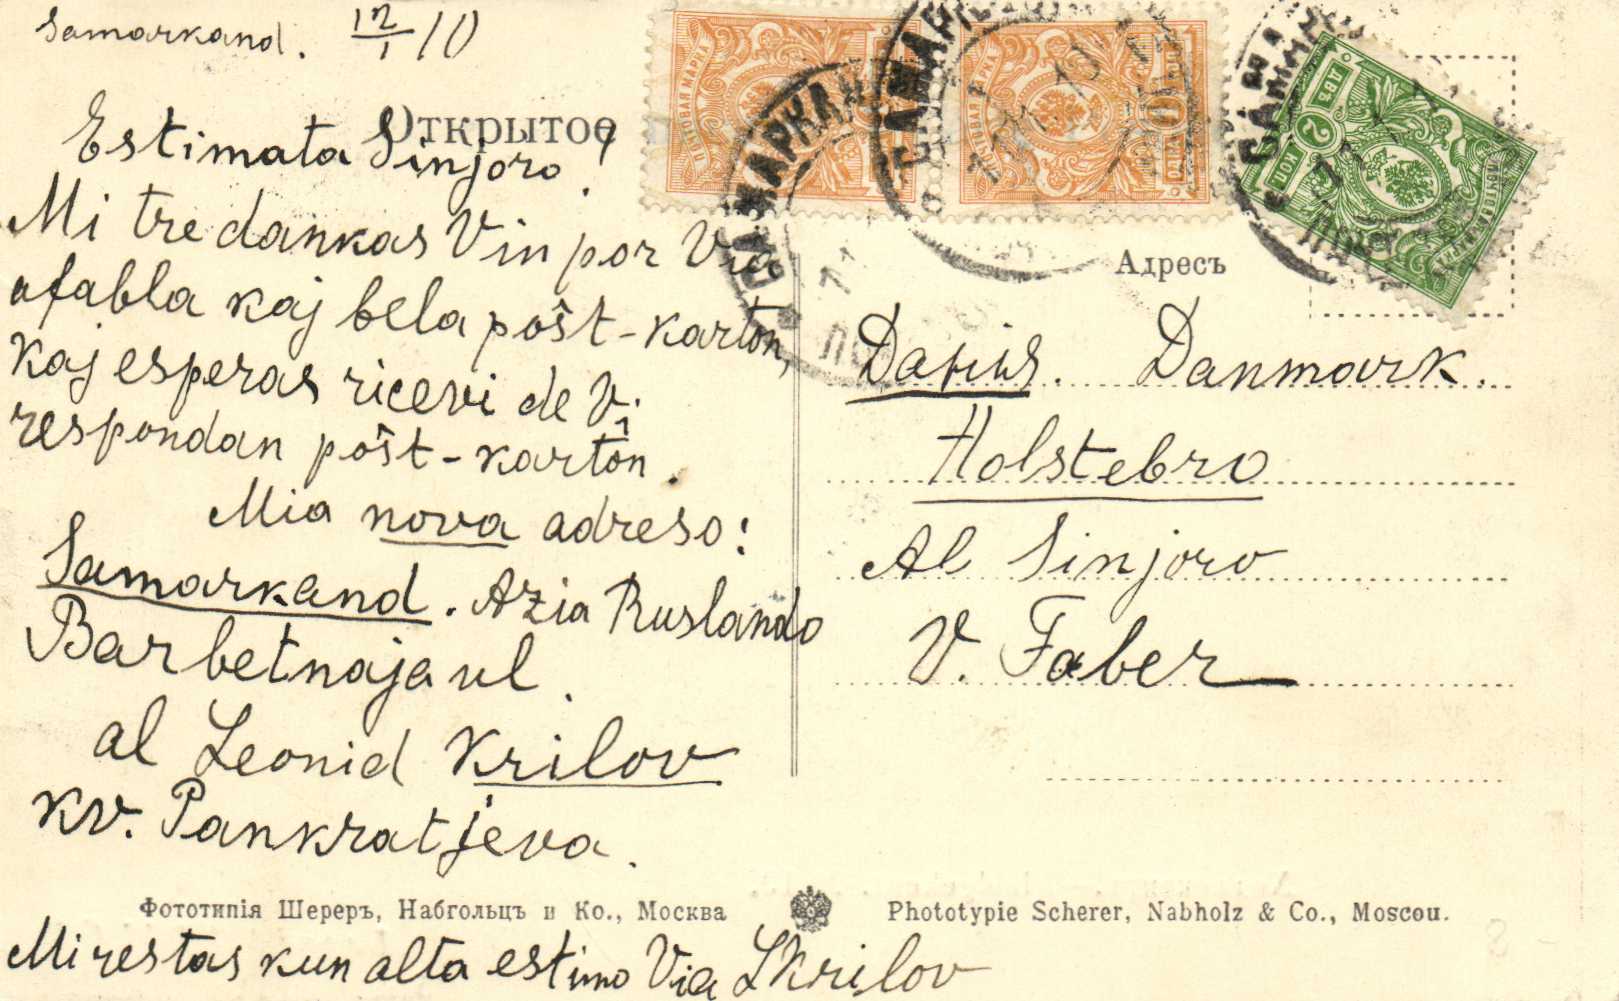 Samarkand. 12/1 10
Открытое
Estimata Sinjoro!
Mi tre dankas Vin por Via
afabla kaj bela poŝt-karton,
kaj esperas ricevi de V.
respondan poŝt-kartôn.
Mia nova adreso:
Samarkand. Azia Ruslando
Barbetnaja ul.
al Leonid Krilov
kv. Pankratjeva.
Mi restas kun alta estimo Via LKrilov
ПОЧТОВАЯ МАРКА
ПОЧТОВАЯ МАРКА
ДВѢ 2 КОП
САМАРКАН
САМАРК
САМАРК
Адресъ
Danmark.
Holstebro
Al Sinjoro
V. Faber
Фототипія Шереръ, Набгольцъ и Ко., Москва
Phototypie Scherer, Nabholz & Co., Moscou.